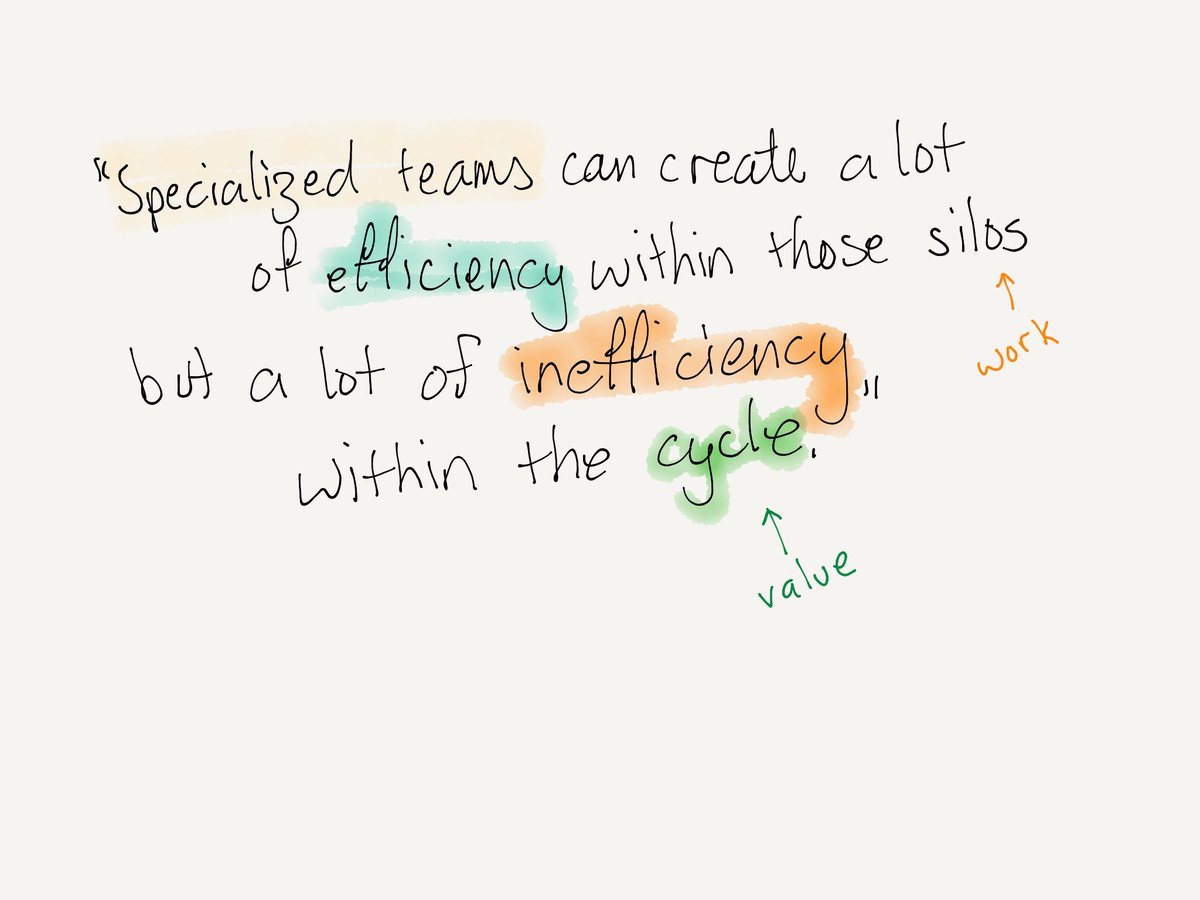 "Specialized teams can create a lot
of efficiency within those silos
work
but a lot of inefficiency"
within the cycle.
value